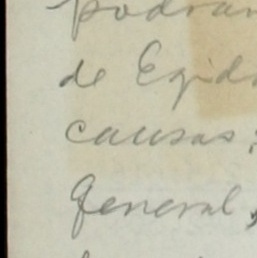 podrán
de Egid
causas;
General,